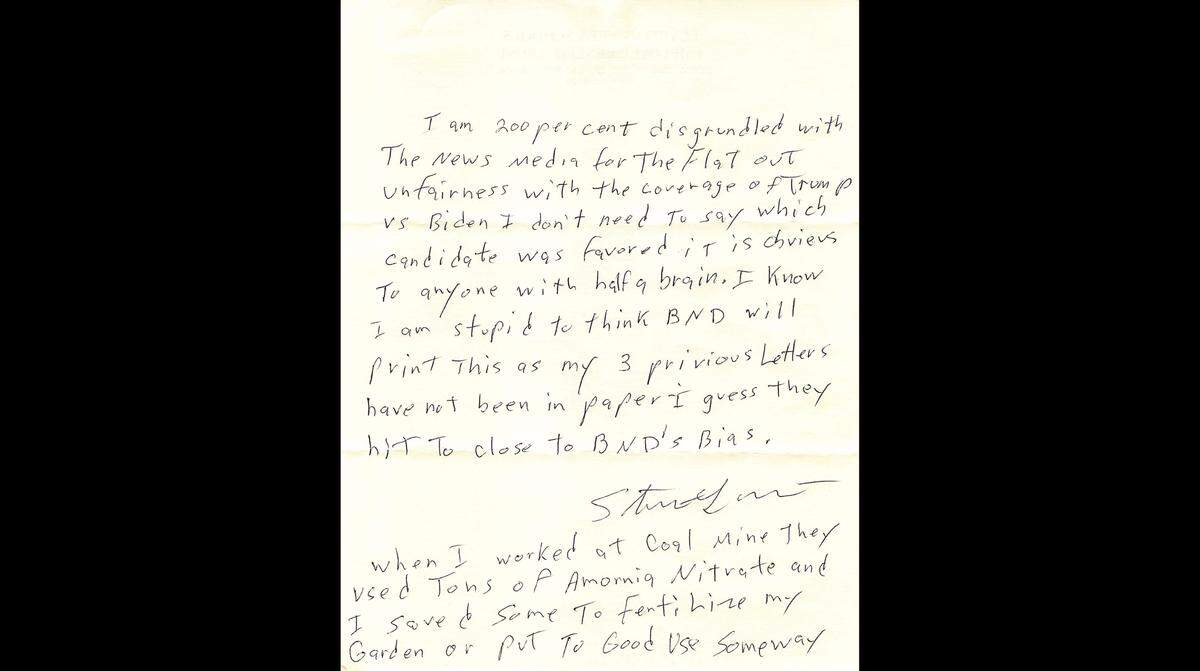 I am 200 per cent disgrundled with
The News Media for The Flat out
unfairness with the coverage of Trump
vs Biden I don't need To say which
candidate was favored it is obvievs
To anyone with half a brain. I Know
I am stupid to think BND will
print This as my 3 privious Letters
have not been in paper I guess they
hit To close to BND's Bias.
when I worked at Coal Mine They
used Tons of Amornia Nitrate and
I saved Some To fertilize my
Garden or put To Good Use Someway